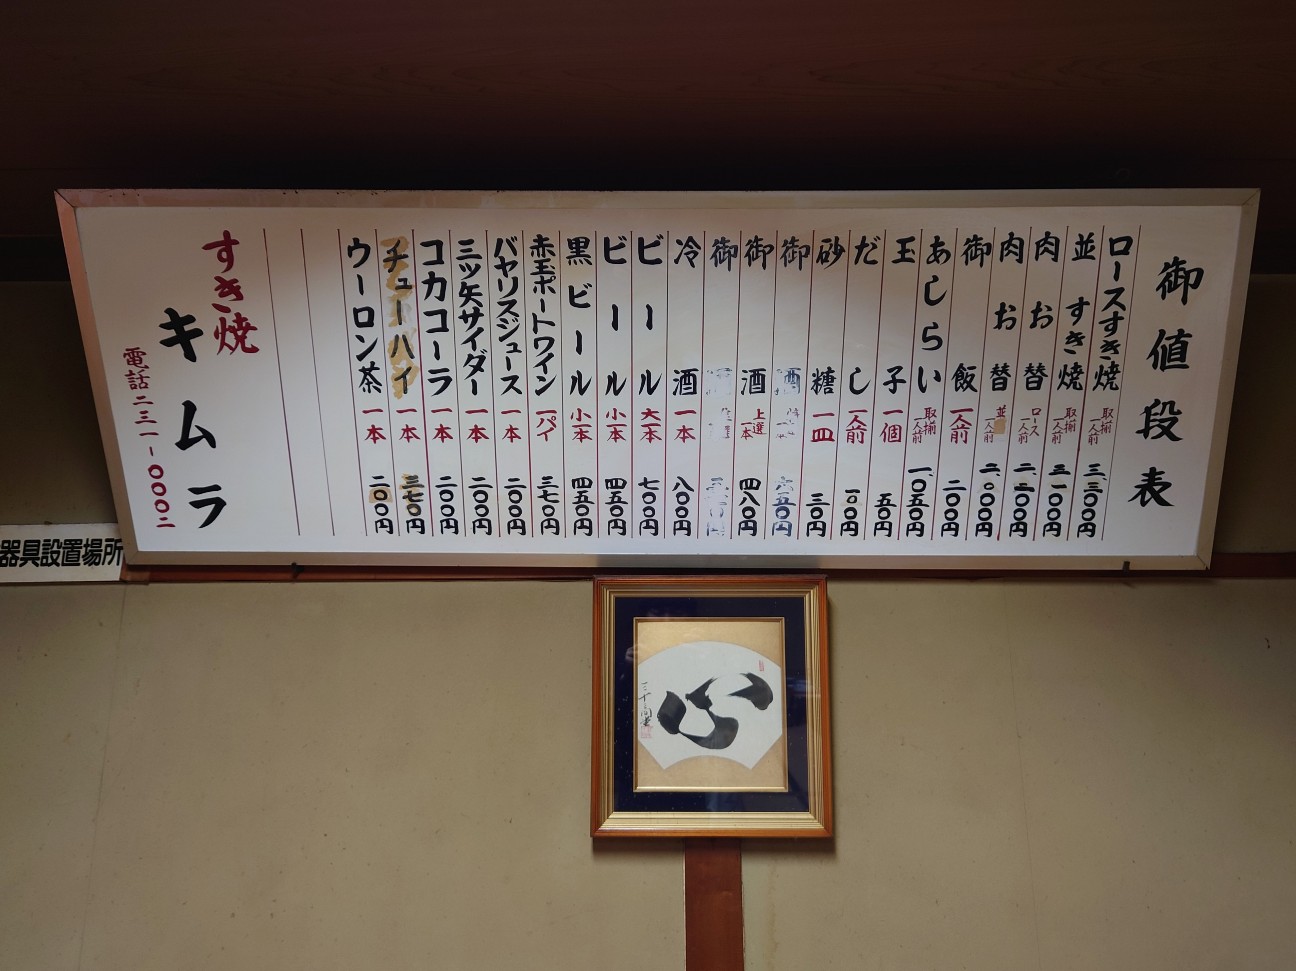 御値段表
ロースすき焼 取揃一人前 三、三〇〇円
並すき焼 取揃一人前 三、一〇〇円
肉お替 ロース一人前 二、二〇〇円
肉お替 並一人前 二、〇〇〇円
御飯 一人前 二〇〇円
あしらい 取揃一人前 一、〇五〇円
玉子 一個 五〇円
だし 一人前 一〇〇円
砂糖 一皿 三〇円
御酒 五〇円
御酒 上選一本 四八〇円
御
冷酒 一本 八〇〇円
ビール 大一本 七〇〇円
ビール 小一本 四五〇円
黒ビール 小一本 四五〇円
赤玉ポートワイン 一パイ 三七〇円
バヤリスジュース 一本 二〇〇円
三ツ矢サイダー 一本 二〇〇円
コカコーラ 一本 二〇〇円
チューハイ 一本 三七〇円
ウーロン茶 一本 二〇〇円
すき焼
キムラ
電話二三一-〇〇〇二
器具設置場所
心